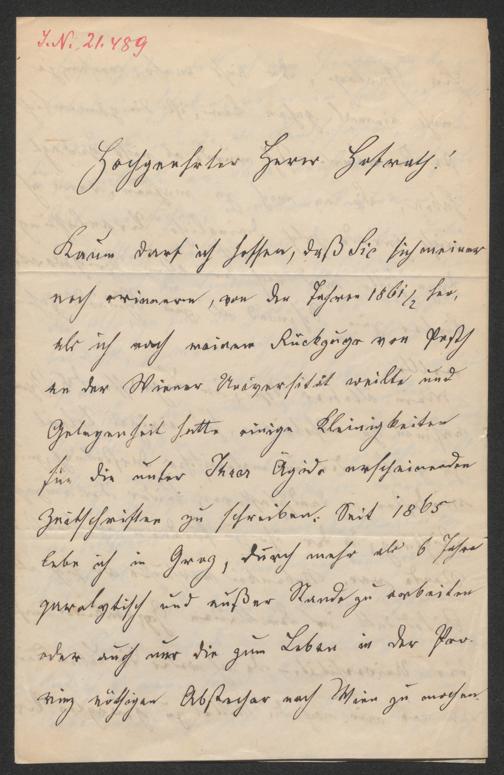 J.N. 21.489
Hochgeehrter Herr Hofrath!
Kaum darf ich hoffen, daß Sie sich meiner
noch erinnern, von den Jahren 1861/2 her,
als ich nach meinem Rückzuge von Pesth
an der Wiener Universität weilte und
Gelegenheit hatte einige Kleinigkeiten
für die unter Ihrer Ägide erscheinenden
Zeitschriften zu schreiben. Seit 1865
lebe ich in Graz, durch mehr als 6 Jahre
paralytisch und außer Stande zu arbeiten
oder auch nur die zum Leben in der Pro-
vinz nöthigen Abstecher nach Wien zu machen.